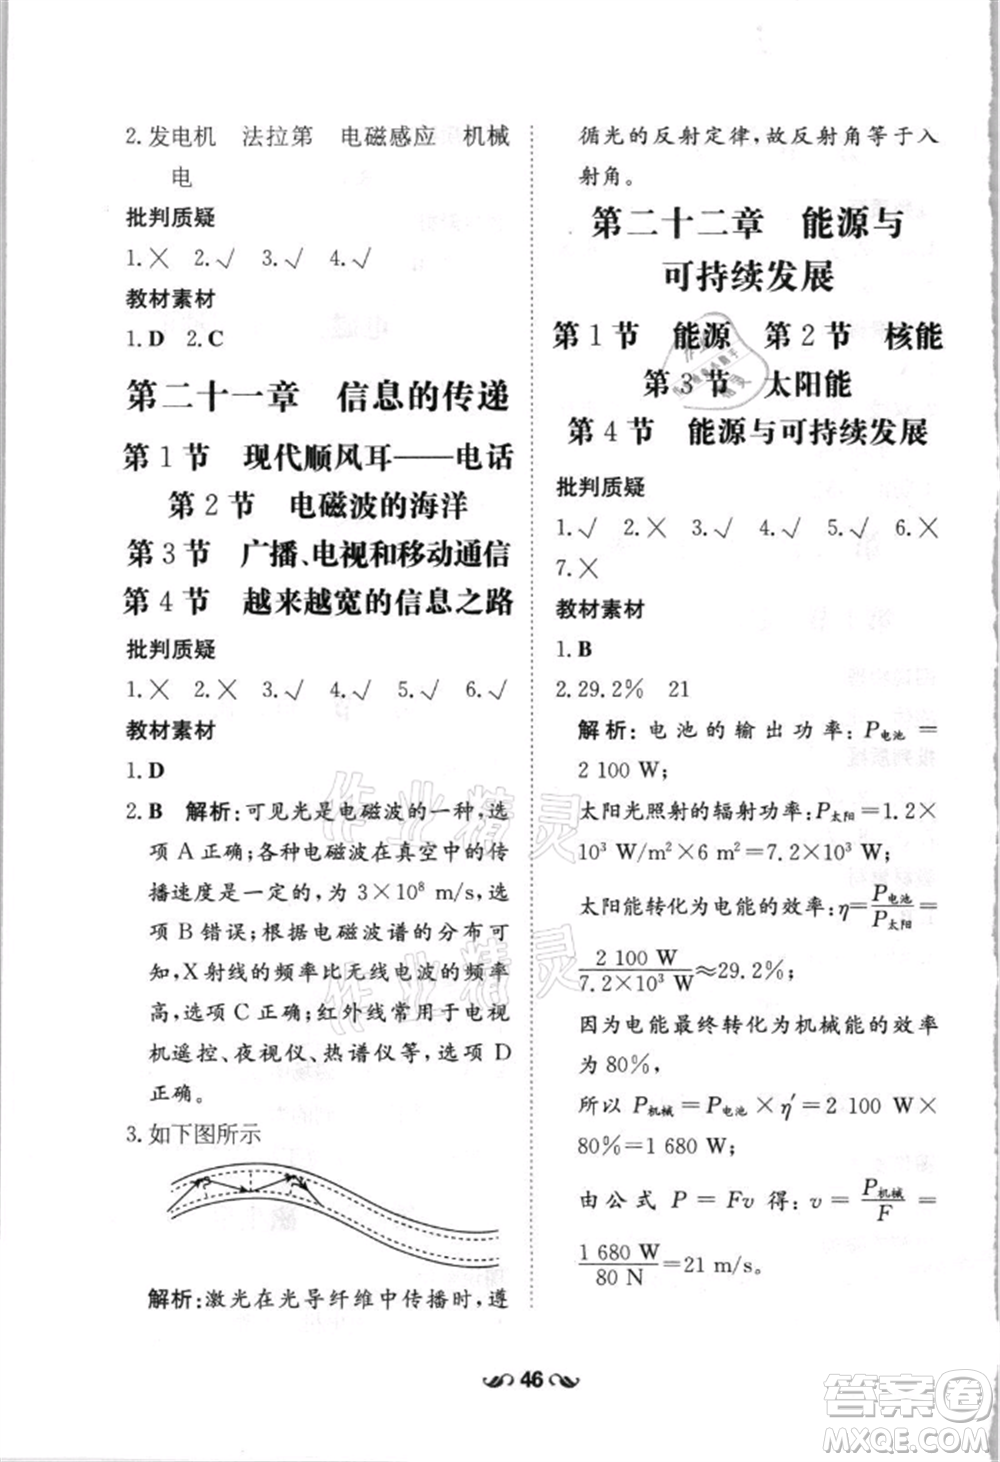 2. 发电机　法拉第　电磁感应　机械
电
批判质疑
1.×　2.√　3.√　4.√
教材素材
1. D　2. C
第二十一章　信息的传递
第1节　现代顺风耳——电话
第2节　电磁波的海洋
第3节　广播、电视和移动通信
第4节　越来越宽的信息之路
批判质疑
1.×　2.×　3.√　4.√　5.√　6.√
教材素材
1. D
2. B　解析:可见光是电磁波的一种,选
项 A 正确;各种电磁波在真空中的传
播速度是一定的,为 3×10⁸ m/s,选
项 B 错误;根据电磁波谱的分布可
知,X 射线的频率比无线电波的频率
高,选项 C 正确;红外线常用于电视
机遥控、夜视仪、热谱仪等,选项 D
正确。
3. 如下图所示
解析:激光在光导纤维中传播时,遵
循光的反射定律,故反射角等于入
射角。
第二十二章　能源与
可持续发展
第1节　能源　第2节　核能
第3节　太阳能
第4节　能源与可持续发展
批判质疑
1.√　2.×　3.×　4.√　5.√　6.×
7.×
教材素材
1. B
2. 29.2%　21
解析:电池的输出功率:P电池=
2 100 W;
太阳光照射的辐射功率:P太阳=1.2×
10³ W/m²×6 m²=7.2×10³ W;
太阳能转化为电能的效率:η=P电池/P太阳=
2 100 W/7.2×10³ W≈29.2%;
因为电能最终转化为机械能的效率
为 80%,
所以 P机械=P电池×η′=2 100 W×
80%=1 680 W;
由公式 P=Fv 得:v=P机械/F=
1 680 W/80 N=21 m/s。
46
作业精灵
作业精灵
答案圈
MXQE.COM